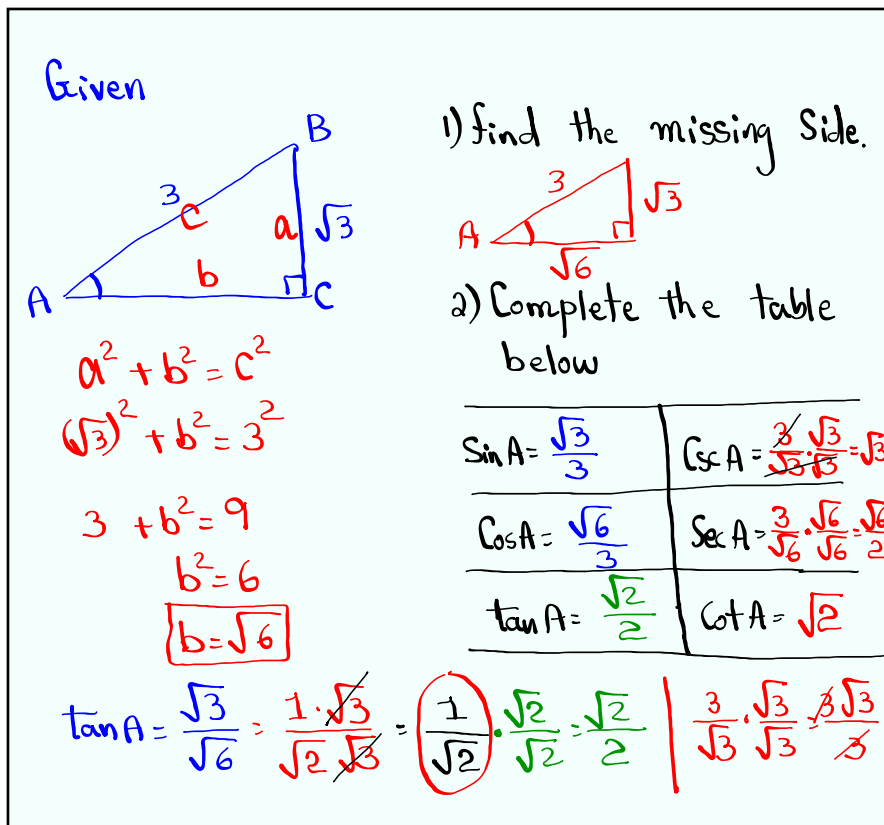 Given
B
3
c
a
√3
b
A
C
a² + b² = c²
(√3)² + b² = 3²
3 + b² = 9
b² = 6
b = √6
1) find the missing Side.
3
√3
A
√6
2) Complete the table
below
Sin A = √3/3
Csc A = 3/√3 · √3/√3 = √3
Cos A = √6/3
Sec A = 3/√6 · √6/√6 = √6/2
tan A = √2/2
Cot A = √2
tan A = √3/√6 = 1·√3/√2 √3 = 1/√2 · √2/√2 = √2/2
3/√3 · √3/√3 = 3√3/3